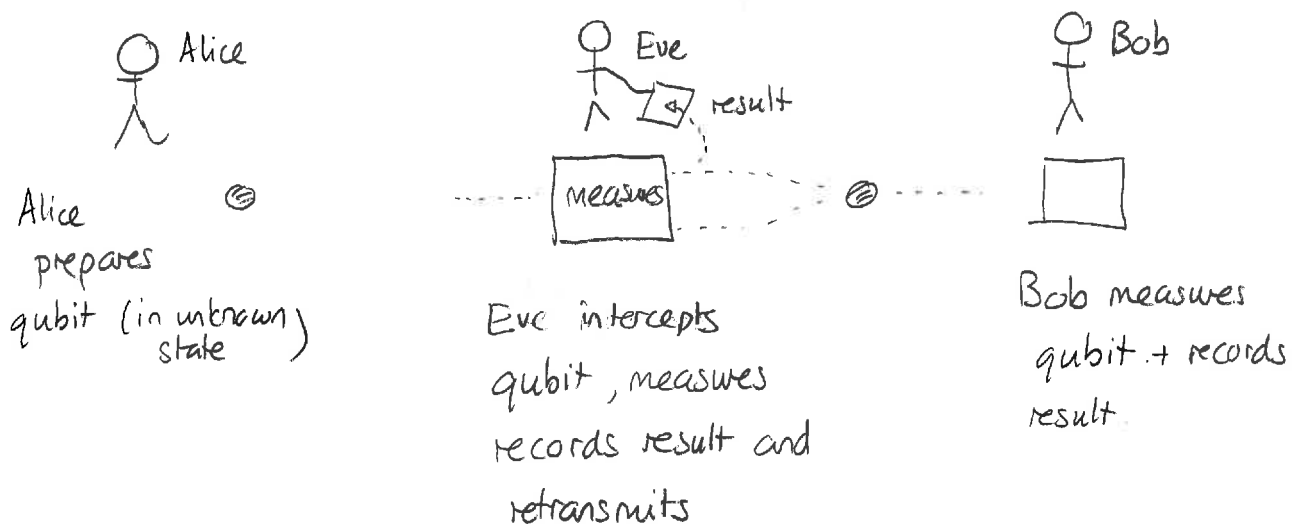 Alice
Eve
Bob
result
measures
Alice
prepares
qubit (in unknown
state)
Eve intercepts
qubit, measures
records result and
retransmits
Bob measures
qubit + records
result